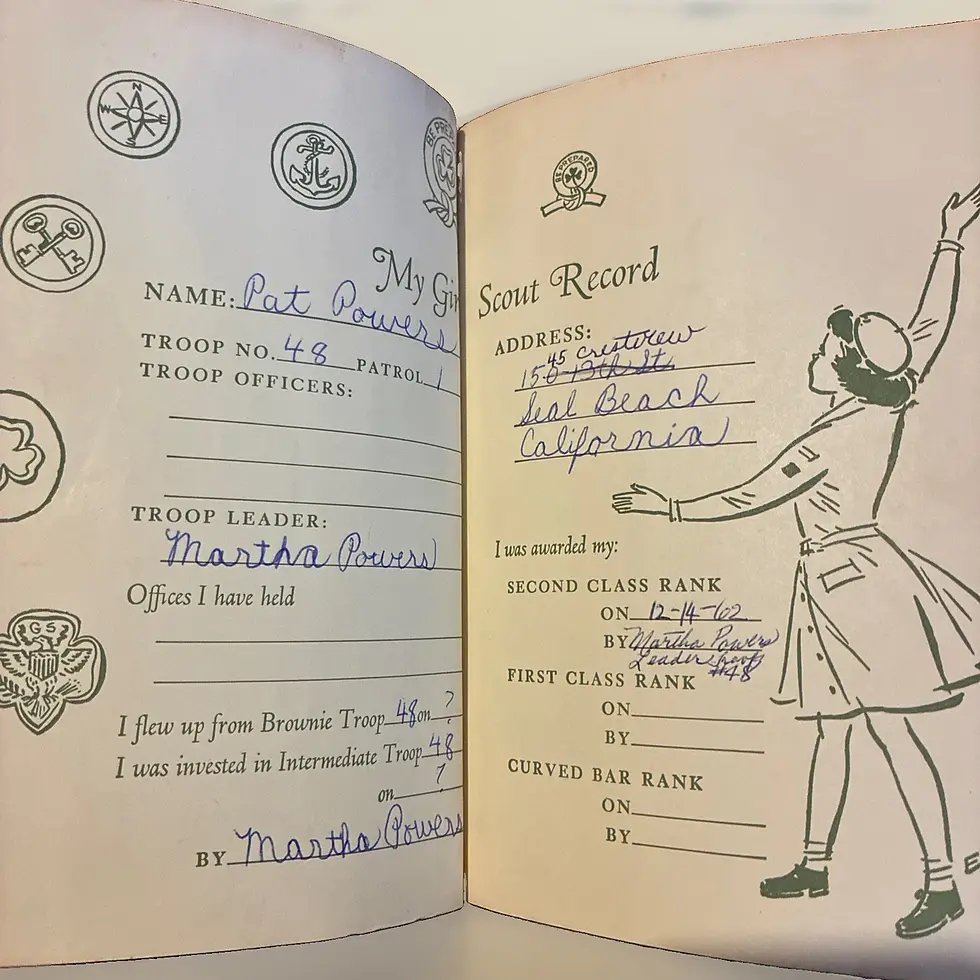 N
W E
S
BE PRE
BE PREPARED
My Gir
Scout Record
NAME: Pat Powers
TROOP NO. 48 PATROL 1
TROOP OFFICERS:
TROOP LEADER:
Martha Powers
Offices I have held
GS
I flew up from Brownie Troop 48 on ?
I was invested in Intermediate Troop 48
on ?
BY Martha Powers
ADDRESS:
45 Crestview
150-13th St.
Seal Beach
California
I was awarded my:
SECOND CLASS RANK
ON 12-14-62
BY Martha Powers
Leader Troop
#48
FIRST CLASS RANK
ON
BY
CURVED BAR RANK
ON
BY
E